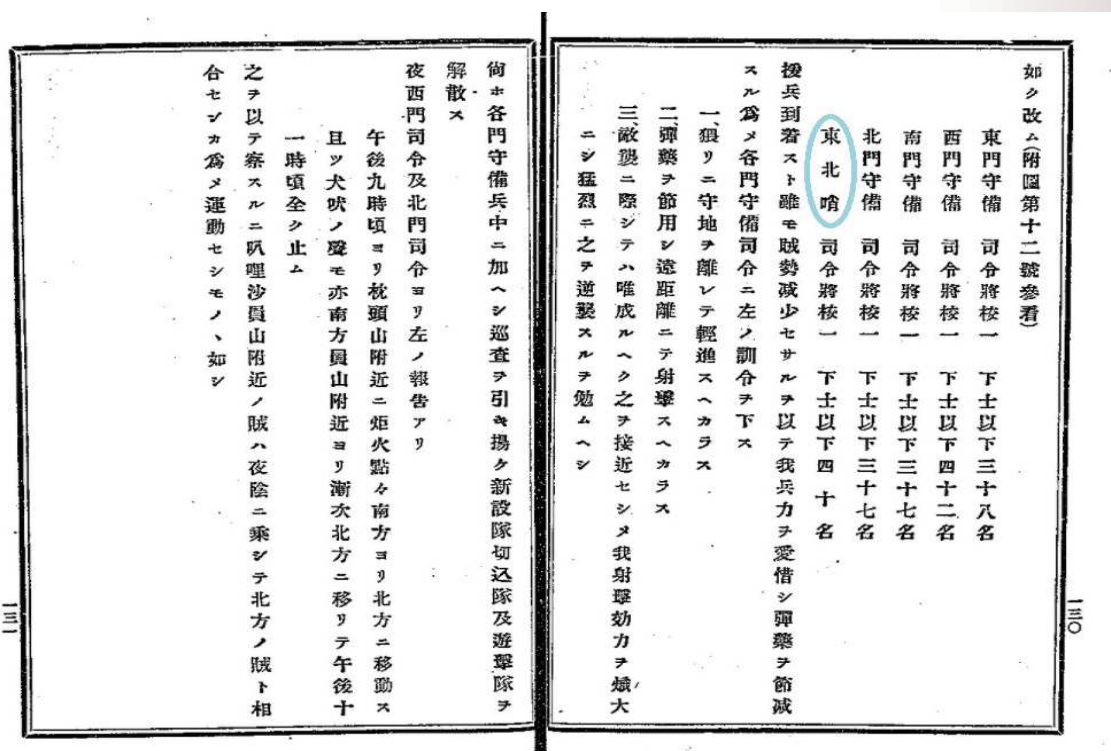 如ク改ム(附圖第十二號參看)
東門守備 司令將校一 下士以下三十八名
西門守備 司令將校一 下士以下四十二名
南門守備 司令將校一 下士以下三十七名
北門守備 司令將校一 下士以下三十七名
東北哨 司令將校一 下士以下四十名
援兵到着スト雖モ賊勢減少セサルヲ以テ我兵力ヲ愛惜シ彈藥ヲ節減
スル爲メ各門守備司令ニ左ノ訓令ヲ下ス
一、猥リニ守地ヲ離レテ輕進スヘカラス
二、彈藥ヲ節用シ遠距離ニテ射擊スヘカラス
三、敵襲ニ際シテハ唯成ルヘク之ヲ接近セシメ我射擊効力ヲ熾大
ニシ猛烈ニ之ヲ逆襲スルヲ勉ムヘシ
一三〇
尙ホ各門守備兵中ニ加ヘシ巡査ヲ引キ揚ケ新設隊切込隊及遊擊隊ヲ
解散ス
夜西門司令及北門司令ヨリ左ノ報告アリ
午後九時頃ヨリ枕頭山附近ニ炬火點々南方ヨリ北方ニ移動ス
且ツ犬吠ノ聲モ亦南方員山附近ヨリ漸次北方ニ移リテ午後十
一時頃全ク止ム
之ヲ以テ察スルニ叭哩沙員山附近ノ賊ハ夜陰ニ乘シテ北方ノ賊ト相
合セシカ爲メ運動セシモノヽ如シ
一三一